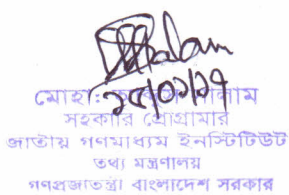 মোহা: 
২৫/০১/১৭
সহকারি প্রোগ্রামার
জাতীয় গণমাধ্যম ইনস্টিটিউট
তথ্য মন্ত্রণালয়
গণপ্রজাতন্ত্রী বাংলাদেশ সরকার